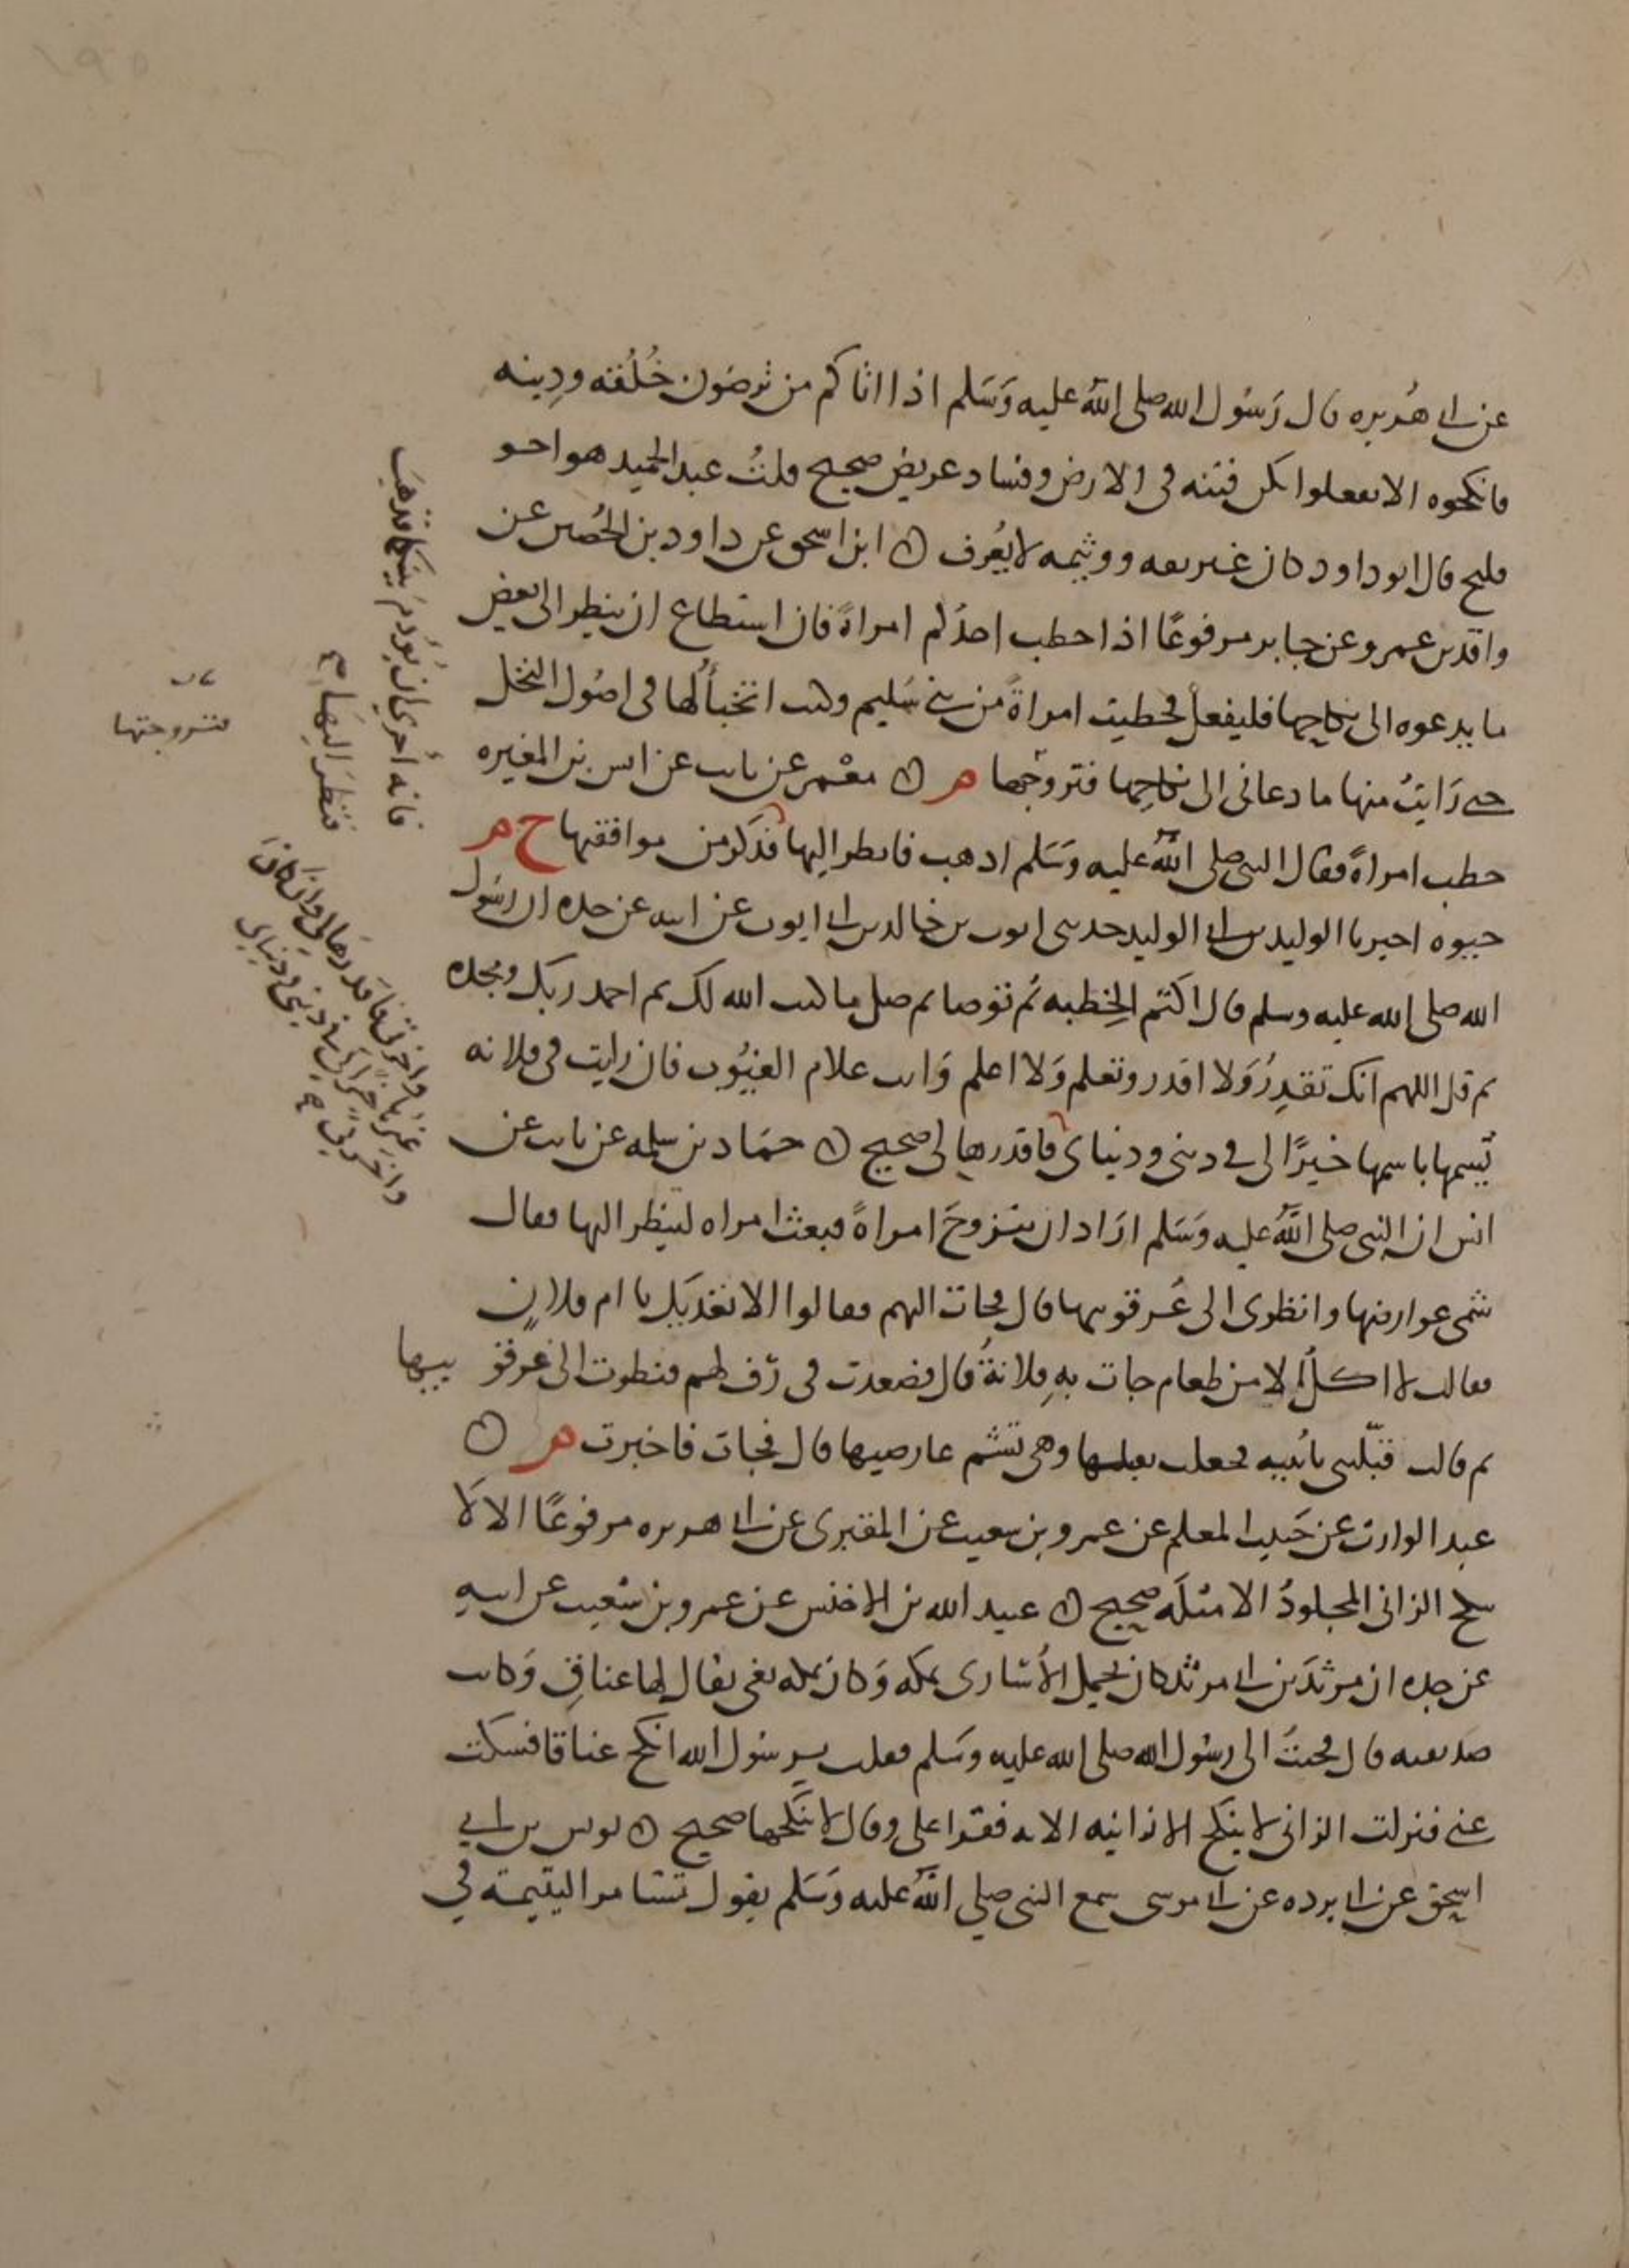 عن ابي هُريره قال رَسُول الله صلى اللهُ عليه وَسَلم اذا اتاكم من ترضَون خُلُقه ودِينه
فانكحوه الا تفعلوا تكن فتنه فى الارض وفساد عريض صحيح قلتُ عبد الحميد هو اخو
فليح قال ابو داود كان غير ثقه ووثيمه لا يُعرف ٥ ابن اسحق عن داود بن الحُصين عن
واقد بن عمرو عن جابر مرفوعًا اذا خطب احدُكم امراةً فان استطاع ان ينظر الى بعض
ما يدعوه الى نكاحها فليفعل فخطبت امراةً من بني سُليم وكنت اتخبأُ لها فى اصُول النخل
حتى رَايتُ منها ما دعانى الى نكاحِها فتزوجْتها هر ٥ معْمر عن ثابت عن انس بن المغيره
خطب امراةً فقال النبى صلى اللهُ عليه وَسَلم اذهب فانظر اليها فذكر من موافقتها ح هر
حيوه اخبرنا الوليد بن ابي الوليد حدثنى ايوب بن خالد بن ابي ايوب عن ابيه عن جده ان رسُول
الله صلى الله عليه وسلم قال اكتُم الخِطبه ثم توضا ثم صل ما كتب الله لك ثم احمد ربك ومجده
ثم قل اللهم انك تقدِرُ وَلا اقدر وتعلم وَلا اعلم وَانت علام الغيُوب فان رايت فى فلانه
تُسِمها باسمها خيرًا لى في دينى ودنياى فاقدرها لى صحيح ٥ حمَاد بن سلمه عن ثابت عن
انس ان النبى صلى اللهُ عليه وَسَلم ارَاد ان يتزوجَ امراةً فبعث امراه لتنظر اليها فقال
شمى عوارضها وانظرى الى عُرقوبيها قال فجات اليهم فقالوا الا نغديكِ يا ام فلانٍ
فقالت لا اكلُ الا من طعام جات بهِ فلانةُ قال فصعدت فى رَف لهم فنظرت الى عرقو بيها
ثم قالت قبّلينى يا بُنيه فجعلت تقبلها وهى تشم عارضيها قال فجات فاخبرت هر ٥
عبد الوارث عن حَبيب المعلم عن عمرو بن شعيب عن المقبرى عن ابي هريره مرفوعًا الا لا
ينكح الزانى المجلودُ الا مثلَه صحيح ٥ عبيد الله بن الاخنس عن عمرو بن شعيب عن ابيهِ
عن جده ان مرثدَ بن ابي مرثد كان يحمل الأُسارى بمكه وَكان بمكه بغى يقال لها عناقِ وَكانت
صديقته قال فجئتُ الى رسُول الله صلى الله عليه وسَلم فقلت يرسُول الله انكح عناقا فسكت
عنى فنزلت الزانى لا ينكح الا زانيه الايه فقرا على وقال لا تنكحها صحيح ٥ يونس بن ابي
اسحق عن ابي برده عن ابي موسى سمع النبى صلى اللهُ عليه وَسَلم يقول تستامر اليتيمة في
فانه أحرى ان يُؤدمَ بينكما فذهبَ
فنظرَ اليهَا
فتزوجتها